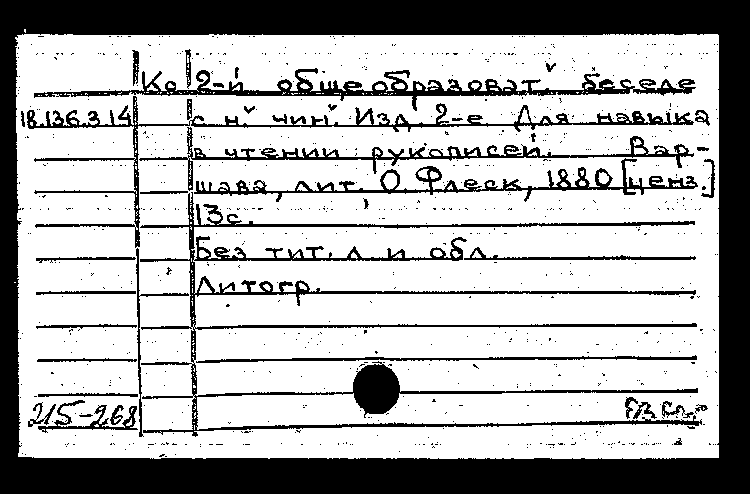 Ко 2-й общеобразоват. беседе
18.136.3.14 с н. чин. Изд. 2-е Для навыка
в чтении рукописей. Вар-
шава, лит. О Флеск, 1880 [ценз.]
13с.
Без тит. л. и обл.
Литогр.
215-268